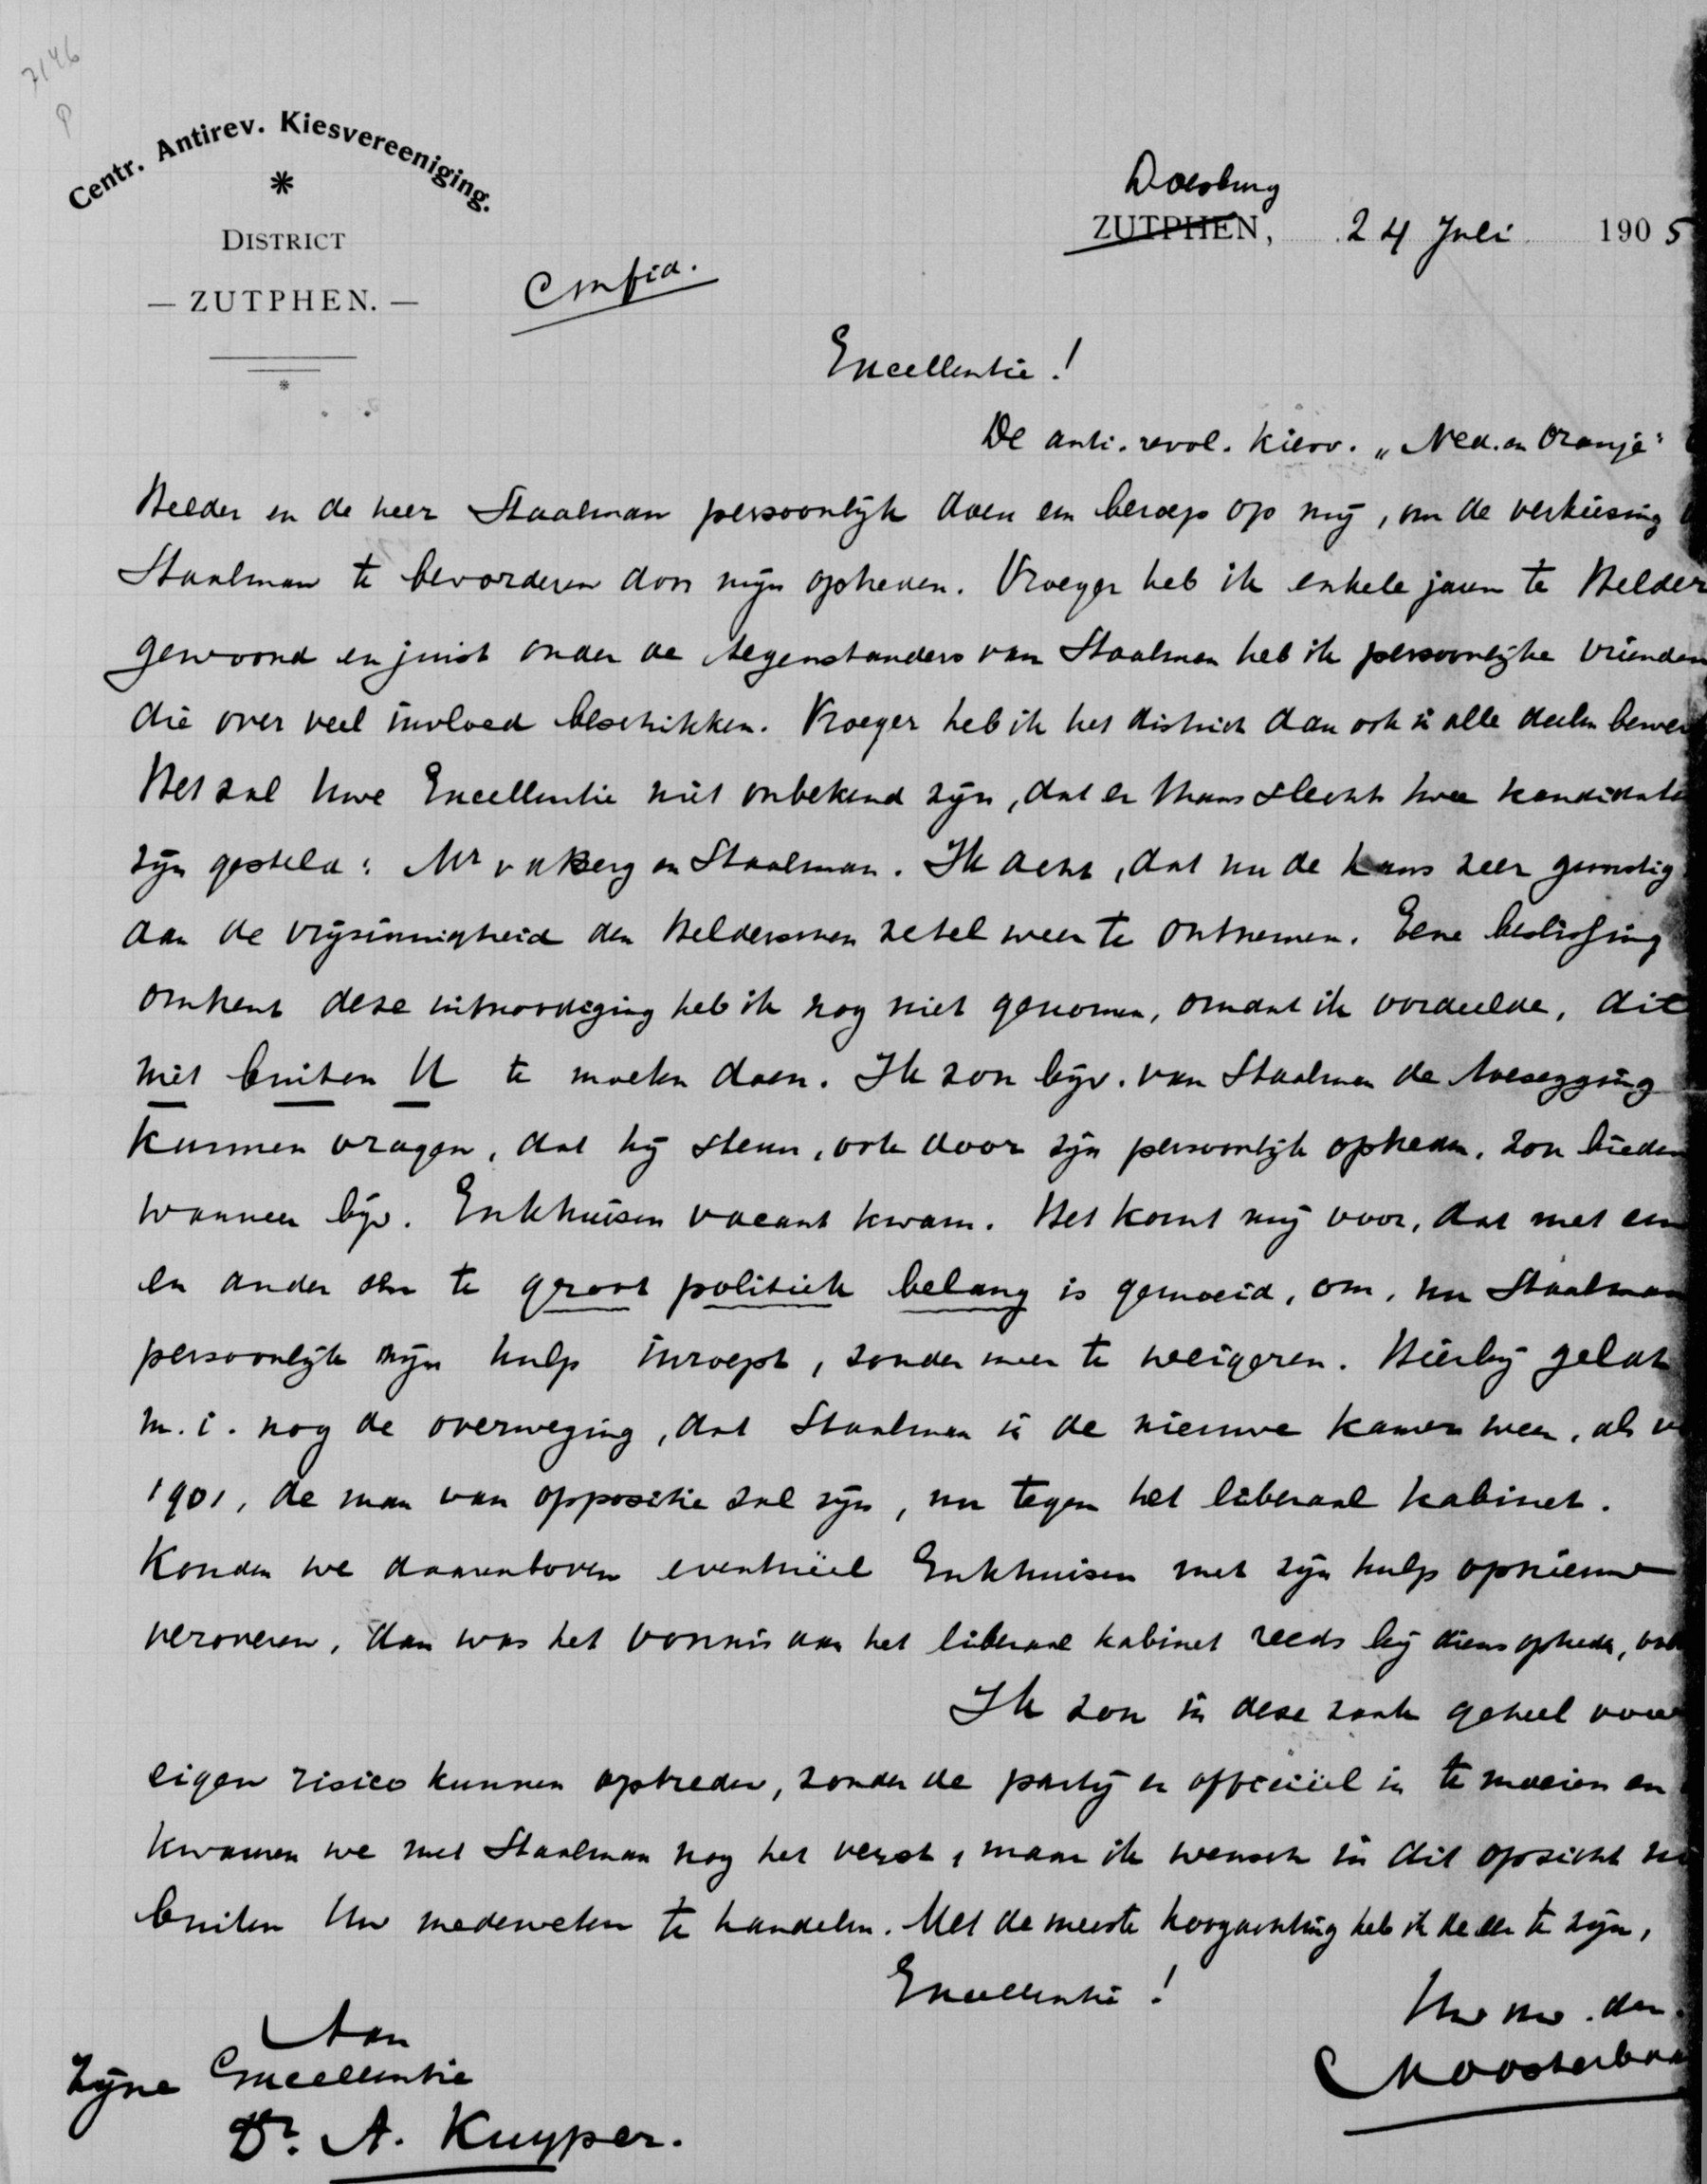 7146
Centr. Antirev. Kiesvereeniging.
DISTRICT
— ZUTPHEN. —
Confid.
Doesburg
ZUTPHEN, 24 Juli 1905
Excellentie!
De anti.revol. kiesv. „Ned. en Oranje"
Helder en de heer Staalman persoonlijk doen een beroep op mij, om de verkiesing
Staalman te bevorderen door mijn optreden. Vroeger heb ik enkele jaren te Helder
gewoond en juist onder de tegenstanders van Staalman heb ik persoonlijke vrienden
die over veel invloed beschikken. Vroeger heb ik het district dan ook in alle deelen
Het zal Uwe Excellentie niet onbekend zijn, dat er thans slechts twee kandidaten
zijn gesteld: Mr v d Berg en Staalman. Ik acht, dat nu de kans zeer gunstig
aan de vrijzinnigheid den Helderschen zetel weer te ontnemen. Eene beslissing
omtrent deze uitnoodiging heb ik nog niet genomen, omdat ik oordeelde, dit
niet buiten U te moeten doen. Ik zou bijv. van Staalman de toezegging
kunnen vragen, dat hij steun, ook door zijn persoonlijk optreden, zou bieden
wanneer bijv. Enkhuizen vacant kwam. Het komt mij voor, dat met een
en ander een te groot politiek belang is gemoeid, om, nu Staalman
persoonlijk mijn hulp inroept, zonder meer te weigeren. Hierbij geldt
m.i. nog de overweging, dat Staalman in de nieuwe kamer weer, als
1901, de man van oppositie zal zijn, nu tegen het liberaal kabinet.
Konden we daarenboven eventuëel Enkhuizen met zijn hulp opnieuw
veroveren, dan was het vonnis aan het liberaal kabinet reeds bij diens optreden,
Ik zou in deze zaak geheel voor
eigen risico kunnen optreden, zonder de partij er officiëel in te moeien en
kwamen we met Staalman nog het verst, maar ik wensch in dit opzicht
buiten Uw medeweten te handelen. Met de meeste hoogachting heb ik de eer te zijn,
Excellentie!
Uw dw. dn.
Aan
Zijne Excellentie
Dr. A. Kuyper.